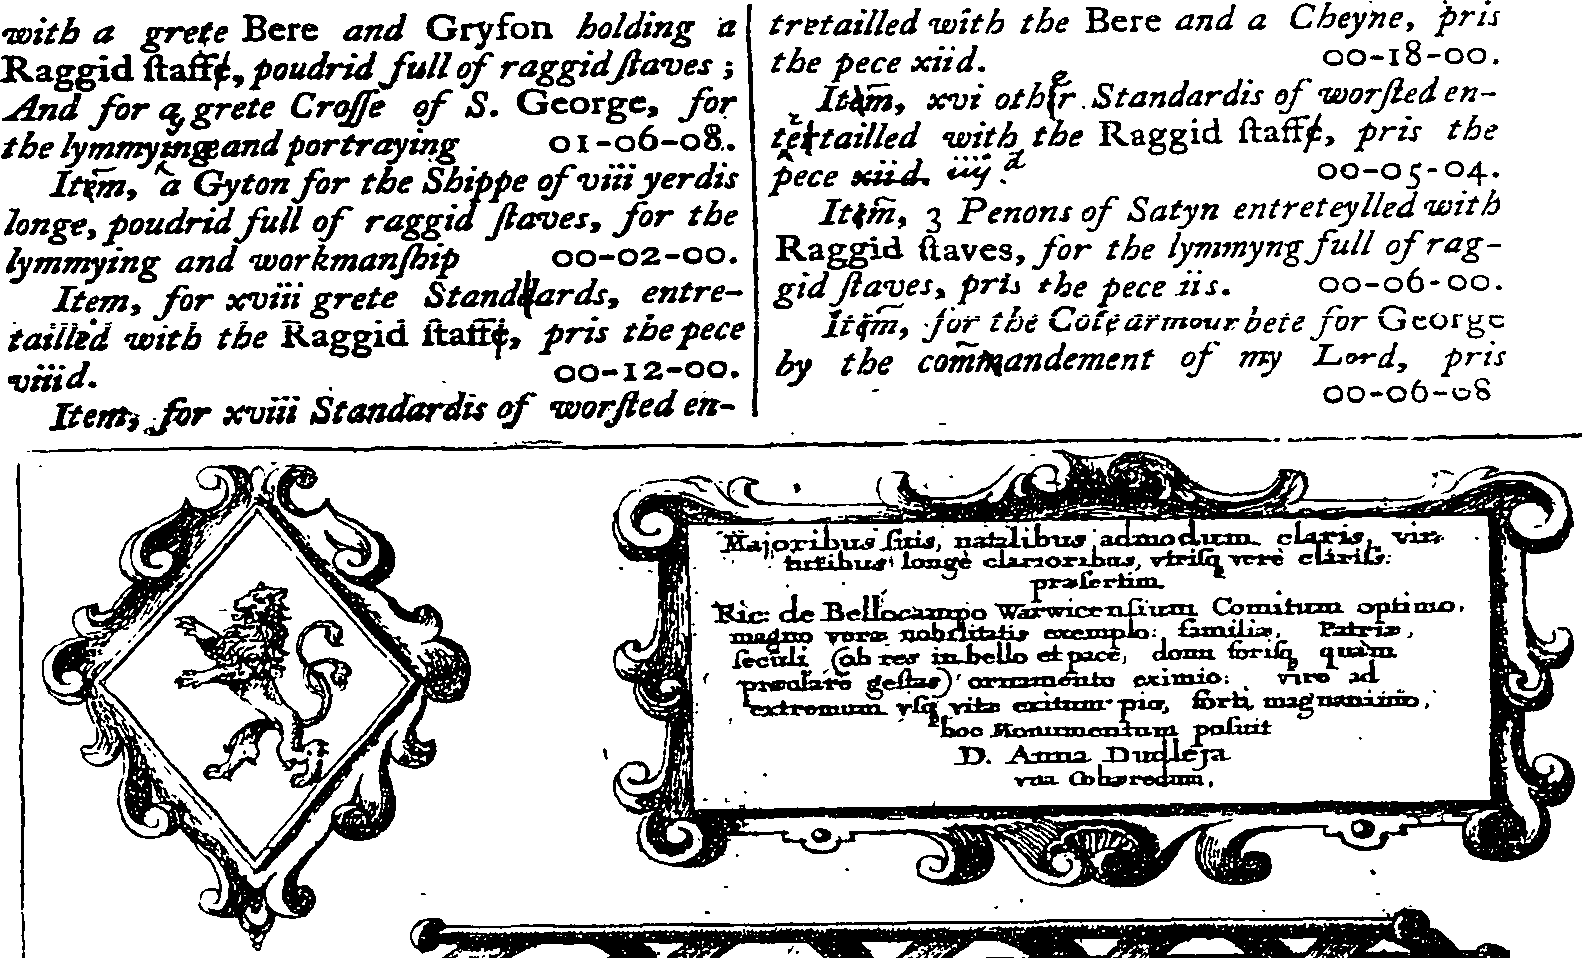 with a grete Bere and Gryfon holding a
Raggid ſtaffe, poudrid full of raggid ſtaves ;
And for a grete Croſſe of S. George, for
the lymmying and portraying 01-06-08.
Item, a Gyton for the Shippe of viii yerdis
longe, poudrid full of raggid ſtaves, for the
lymmying and workmanſhip 00-02-00.
Item, for xviii grete Standards, entre-
tailled with the Raggid ſtaffe, pris the pece
viiid. 00-12-00.
Item, for xviii Standardis of worſted en-
tretailled with the Bere and a Cheyne, pris
the pece xiid. 00-18-00.
Item, xvi other Standardis of worſted en-
tertailled with the Raggid ſtaffe, pris the
pece xiid. iiij.d 00-05-04.
Item, 3 Penons of Satyn entreteylled with
Raggid ſtaves, for the lymmyng full of rag-
gid ſtaves, pris the pece iis. 00-06-00.
Item, for the Cote armour bete for George
by the commandement of my Lord, pris
00-06-08
Majoribus ſuis, natalibus admodum claris, vir-
tutibus longè clarioribus, vtriſq verè clariſs:
præſertim
Ric: de Bellocampo Warwicenſium Comitum optimo,
magno veræ nobilitatis exemplo: familiæ, Patriæ,
ſeculi (ob res in bello et pace, domi foriſq quàm
præclarè geſtas) ornamento eximio: viro ad
extremum vſq vitæ exitum pio, forti, magnanimo,
hoc Monumentum poſuit
D. Anna Dudleja
vna Cohæredum.